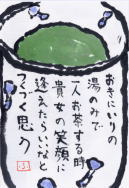 おきにいりの
湯のみで
一人お茶する時
貴女の笑顔に
逢えたらいいなと
つくづく思う
ふ